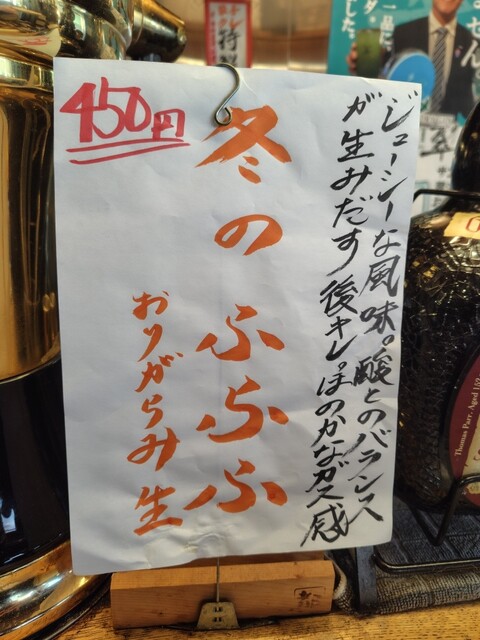 ジューシーな風味。酸とのバランス
が生みだす後キレ。ほのかなガス感
冬のふふふ
おりがらみ生
450円
Thomas Parr. Aged 152